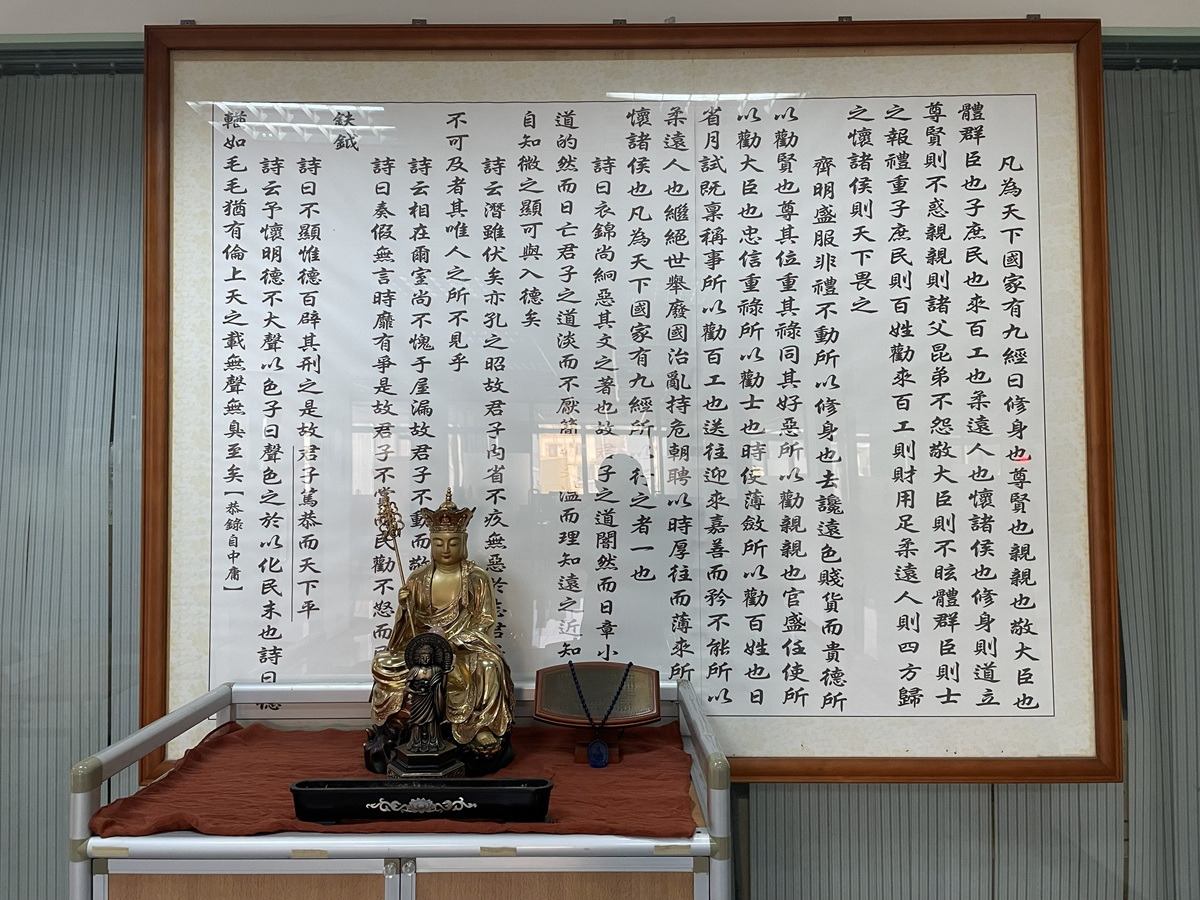 凡為天下國家有九經曰修身也尊賢也親親也敬大臣也
體群臣也子庶民也來百工也柔遠人也懷諸侯也修身則道立
尊賢則不惑親親則諸父昆弟不怨敬大臣則不眩體群臣則士
之報禮重子庶民則百姓勸來百工則財用足柔遠人則四方歸
之懷諸侯則天下畏之
齊明盛服非禮不動所以修身也去讒遠色賤貨而貴德所
以勸賢也尊其位重其祿同其好惡所以勸親親也官盛任使所
以勸大臣也忠信重祿所以勸士也時使薄斂所以勸百姓也日
省月試既稟稱事所以勸百工也送往迎來嘉善而矜不能所以
柔遠人也繼絕世舉廢國治亂持危朝聘以時厚往而薄來所
懷諸侯也凡為天下國家有九經所以行之者一也
詩曰衣錦尚絅惡其文之著也故君子之道闇然而日章小
道的然而日亡君子之道淡而不厭簡溫而理知遠之近知
自知微之顯可與入德矣
詩云潛雖伏矣亦孔之昭故君子內省不疚無惡於志君
不可及者其唯人之所不見乎
詩云相在爾室尚不愧于屋漏故君子不動而敬
詩曰奏假無言時靡有爭是故君子不賞而民勸不怒而
鈇鉞
詩曰不顯惟德百辟其刑之是故君子篤恭而天下平
詩云予懷明德不大聲以色子曰聲色之於以化民末也詩曰德
輶如毛毛猶有倫上天之載無聲無臭至矣【恭錄自中庸】